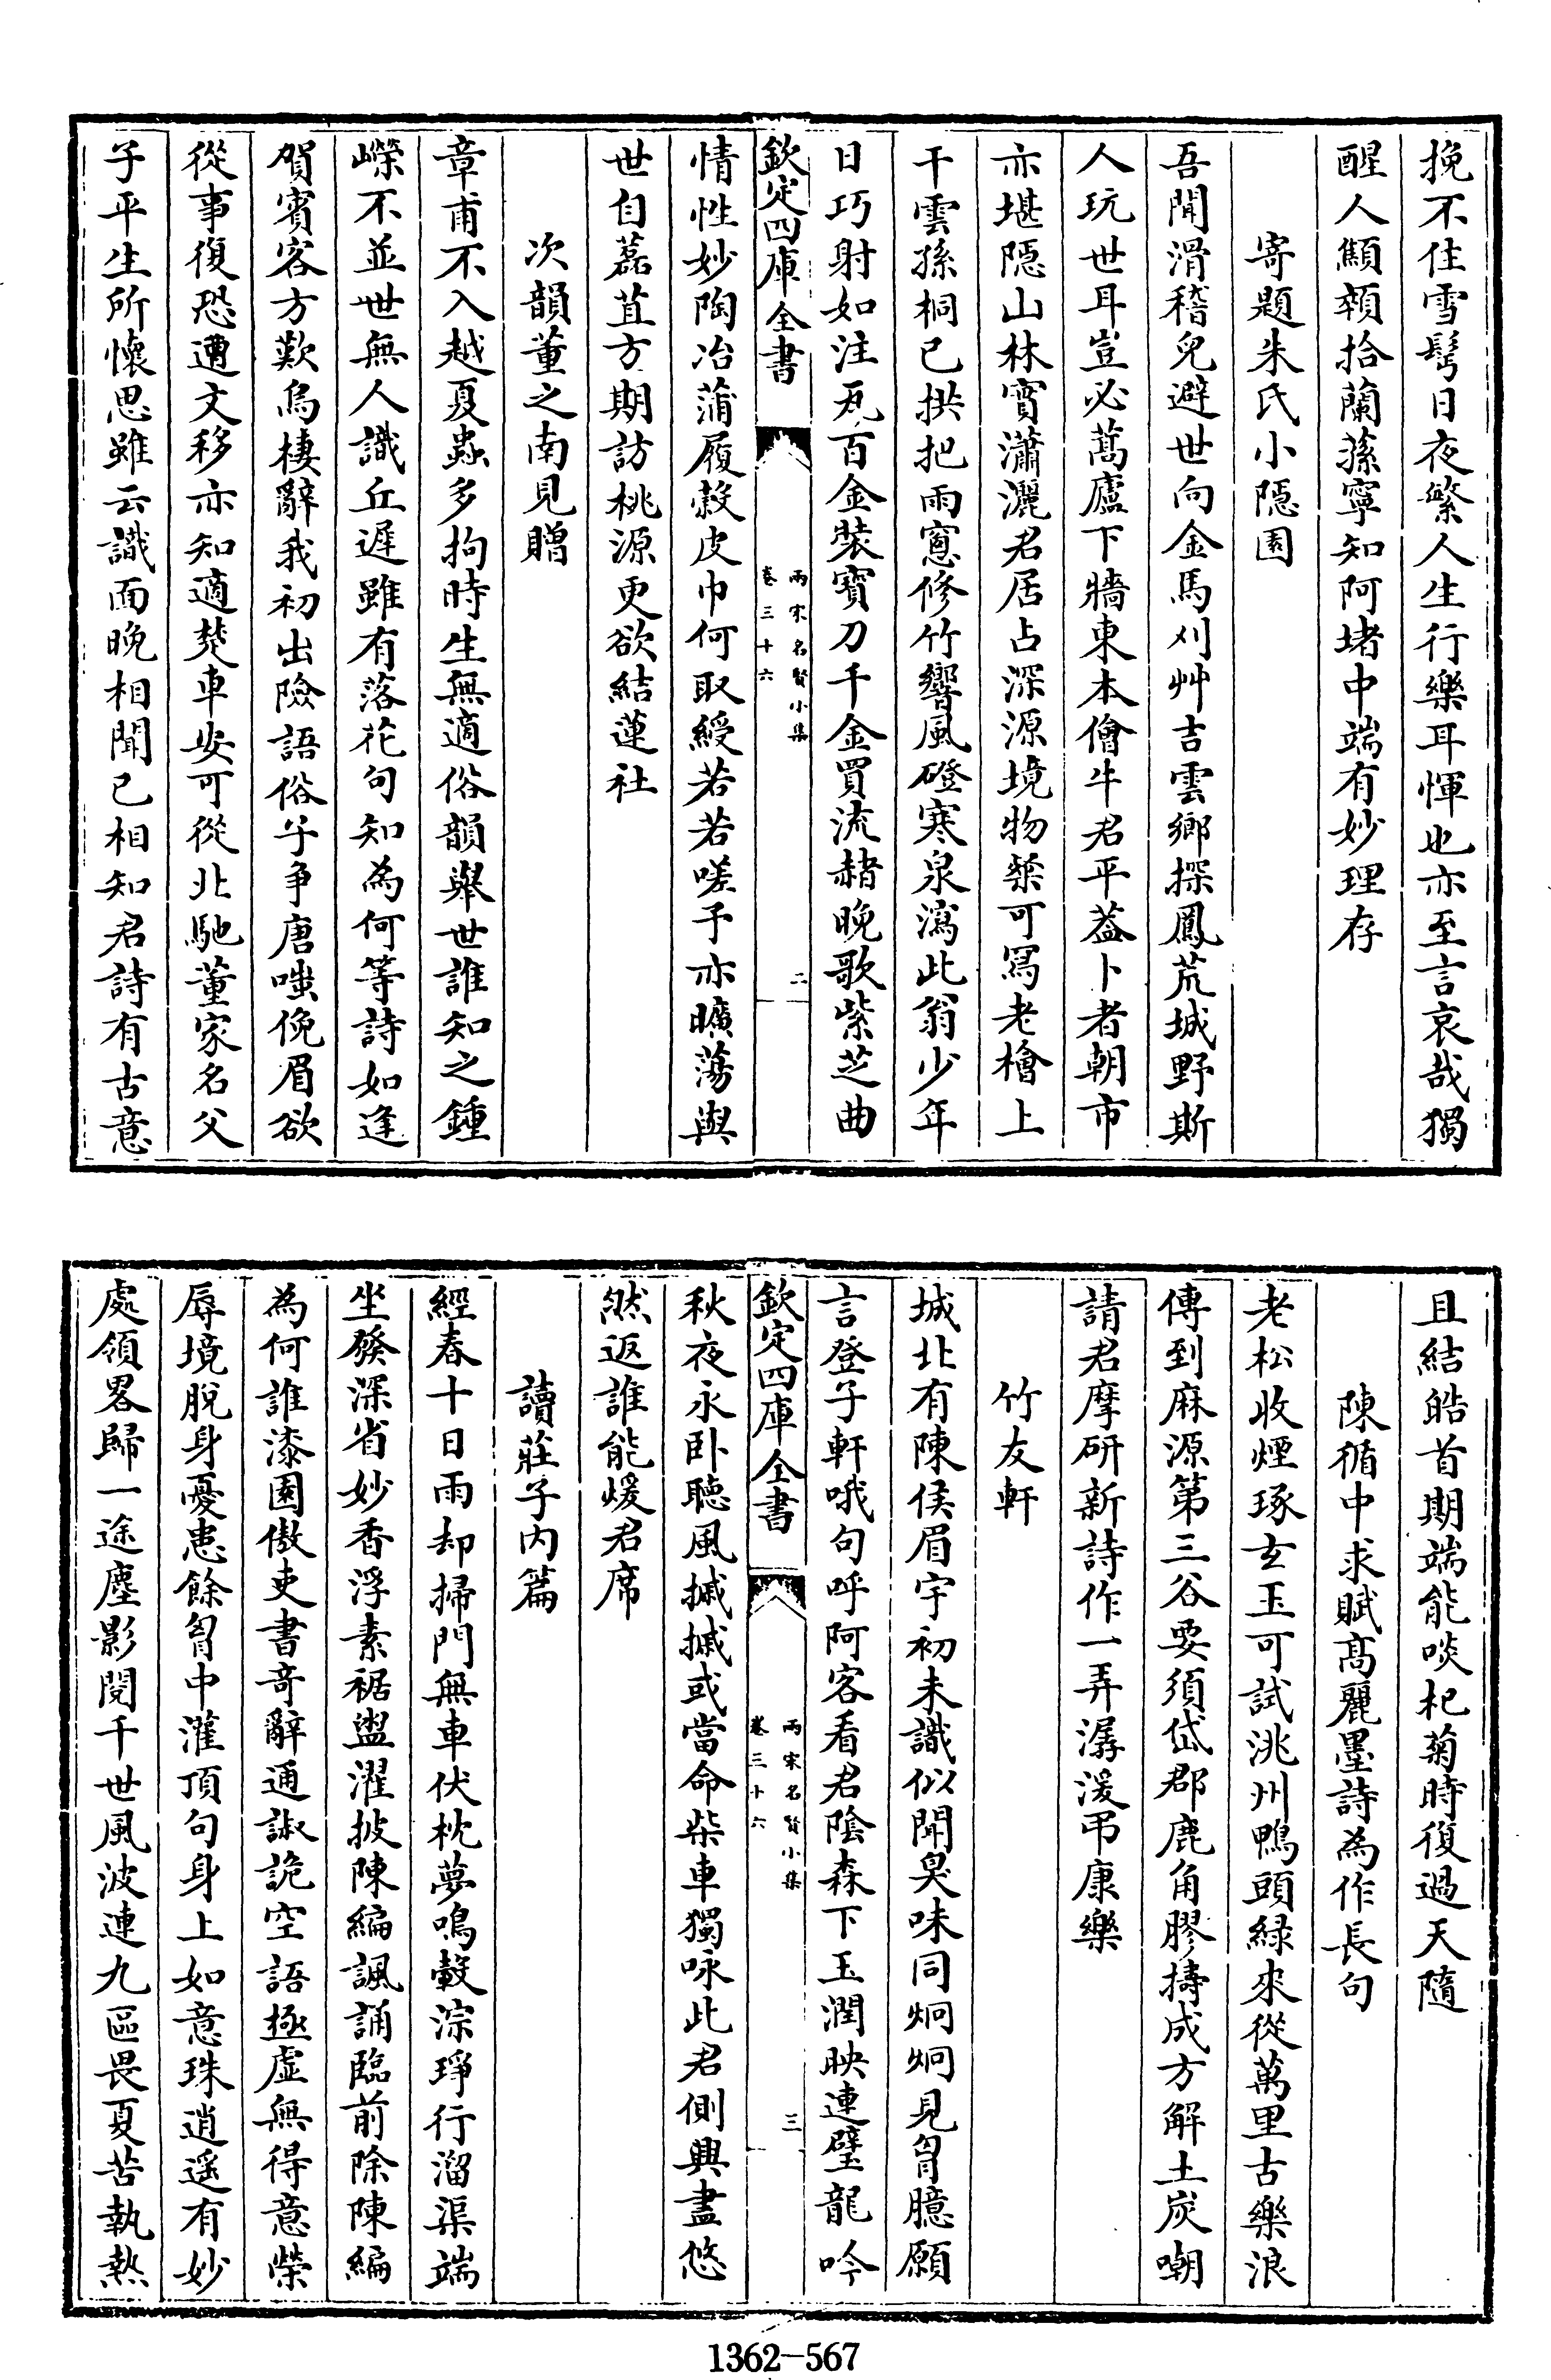 挽不住雪髩日夜繁人生行樂耳惲也亦至言哀哉獨
醒人顦顇拾蘭蓀寧知阿堵中端有妙理存
寄題朱氏小隠園
吾聞滑稽兒避世向金馬刈艸吉雲鄉探鳳荒城野斯
人玩世耳豈必蒿廬下牆東本儈牛君平葢卜者朝市
亦堪隠山林實瀟灑君居占深源境物槩可冩老檜上
干雲孫桐已拱把雨窻修竹響風磴寒泉瀉此翁少年
日巧射如注瓦百金裝寳刀千金買流赭晚歌紫芝曲
欽定四庫全書
兩宋名賢小集
卷三十六
二
情性妙陶冶蒲履縠皮巾何取綬若若嗟予亦曠蕩與
世自藞苴方期訪桃源更欲結蓮社
次韻董之南見贈
章甫不入越夏蟲多拘時生無適俗韻舉世誰知之鍾
嶸不並世無人識丘遲雖有落花句知為何等詩如逢
賀賓客方歎烏棲辭我初出險語俗乎争唐嗤俛眉欲
從事復恐遭文移亦知適楚車安可從北馳董家名父
子平生所懷思雖云識面晚相聞已相知君詩有古意
且結皓首期端能啖杞菊時復過天隨
陳循中求賦髙麗墨詩為作長句
老松收煙琢玄玉可試洮州鴨頭緑來從萬里古樂浪
傳到麻源第三谷要須岱郡鹿角膠擣成方解土炭嘲
請君摩研新詩作一弄潺湲弔康樂
竹友軒
城北有陳侯眉宇初未識似聞臭味同炯炯見胷臆願
言登子軒哦句呼阿客看君陰森下玉潤映連璧龍吟
欽定四庫全書
兩宋名賢小集
卷三十六
三
秋夜永卧聽風摵摵或當命柴車獨咏此君側興盡悠
然返誰能煖君席
讀莊子内篇
經春十日雨却掃門無車伏枕夢鳴轂淙琤行溜渠端
坐發深省妙香浮素裾盥濯披陳編諷誦臨前除陳編
為何誰漆園傲吏書竒辭通諔詭空語極虛無得意榮
辱境脫身憂患餘胷中灌頂句身上如意珠逍遙有妙
處領畧歸一途塵影閱千世風波連九區畏夏苦執熱
1362-567